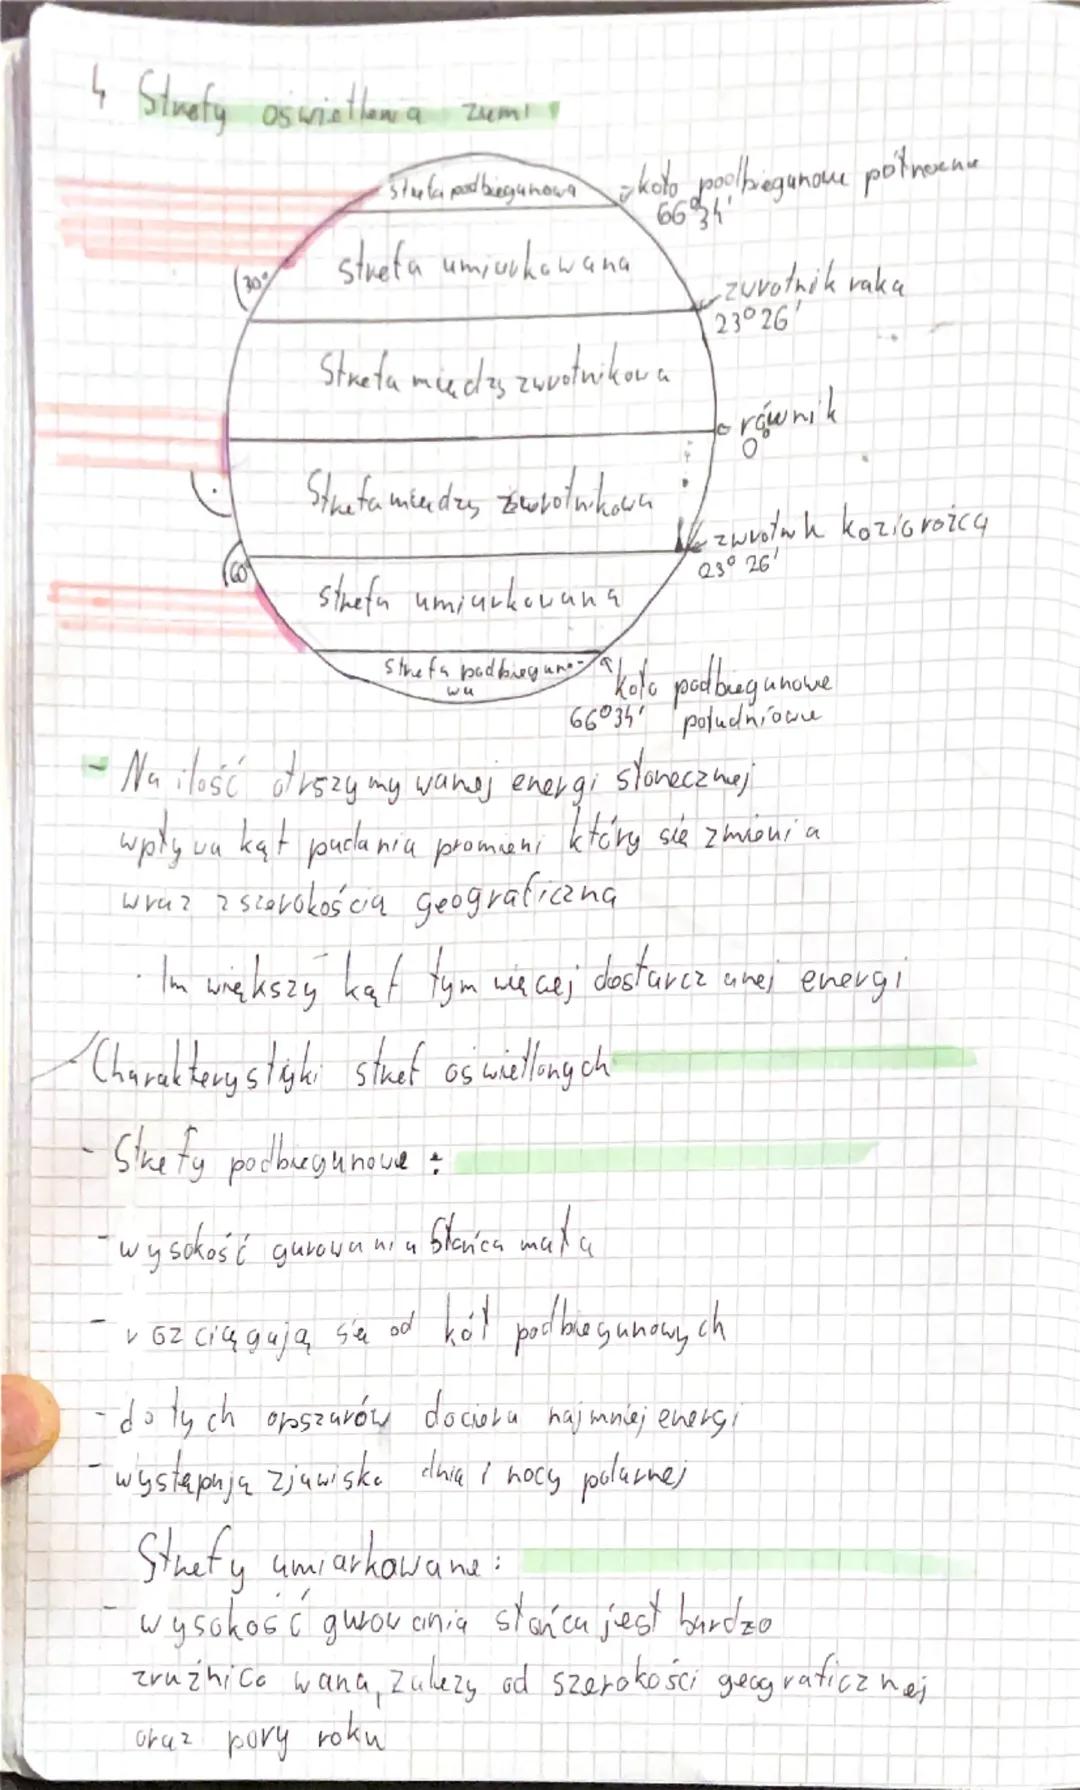 4 Strefy oświetlenia ziemi
strefa podbiegunowa
koło podbiegunowe północne
66°34'
strefa umiarkowana
30°
zwrotnik raka
23°26'
Strefa między zwrotnikowa
równik
0°
Strefa między zwrotnikowa
zwrotnik koziorożca
23°26'
60°
strefa umiarkowana
strefa podbieguno-
wa
koło podbiegunowe
66°34' południowe
- Na ilość otrszymywanej energi słonecznej
wpływa kąt padania promieni który się zmienia
wraz z szerokością geograficzną
· Im większy kąt tym więcej dostarczanej energi
Charakterystyki stref oświetlonych
- Strefy podbiegunowe:
- wysokość gurowania Słańca mała
- rozciągają się od kół podbiegunowych
- do tych opszarów dociera najmniej energi
- występują zjawiska dnia i nocy polarnej
Strefy umiarkowane:
- wysokość gurowania słańca jest bardzo
zrużnicowana, zależy od szerokości geograficznej
oraz pory roku